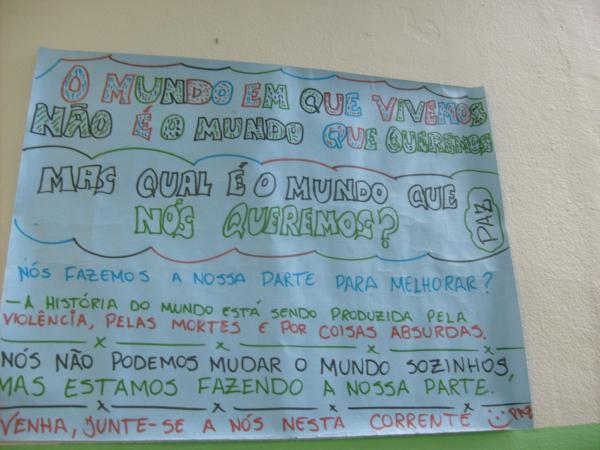 O MUNDO EM QUE VIVEMOS
NÃO É O MUNDO QUE QUEREMOS
MAS QUAL É O MUNDO QUE
NÓS QUEREMOS?
PAZ
NÓS FAZEMOS A NOSSA PARTE PARA MELHORAR?
— A HISTÓRIA DO MUNDO ESTÁ SENDO PRODUZIDA PELA
VIOLÊNCIA, PELAS MORTES E POR COISAS ABSURDAS.
NÓS NÃO PODEMOS MUDAR O MUNDO SOZINHOS,
MAS ESTAMOS FAZENDO A NOSSA PARTE.
VENHA, JUNTE-SE A NÓS NESTA CORRENTE :) PAZ